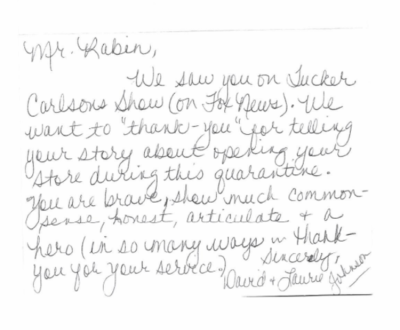 Mr. Rabin,
We saw you on Tucker
Carlsons Show (on Fox News). We
want to "thank-you" for telling
your story about opening your
store during this quarantine.
You are brave, show much common-
sense, honest, articulate + a
hero (in so many ways ~ thank-
you for your service.) Sincerely,
David + Laurie Johnson